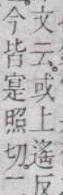 文云。或上遙反
今皆寔照切一